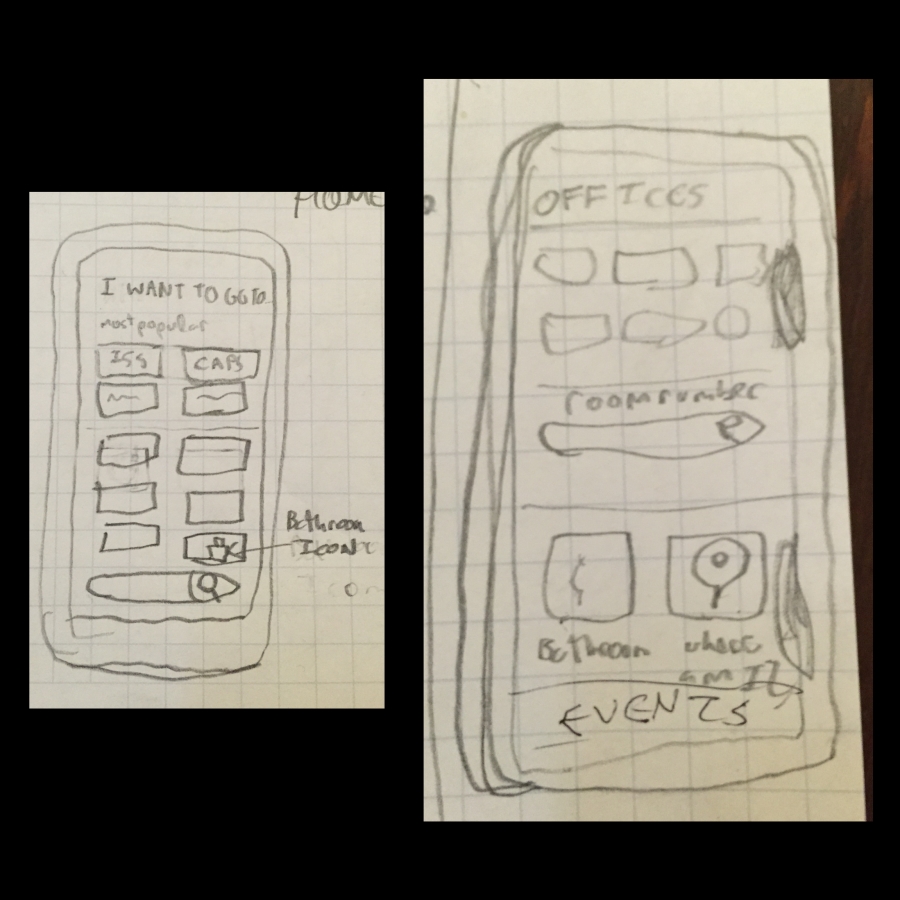 HOME
I WANT TO GO TO
most popular
ISS
CAPS
Bathroom
Icon
OFFICES
room number
Bathroom
where
am I?
EVENTS